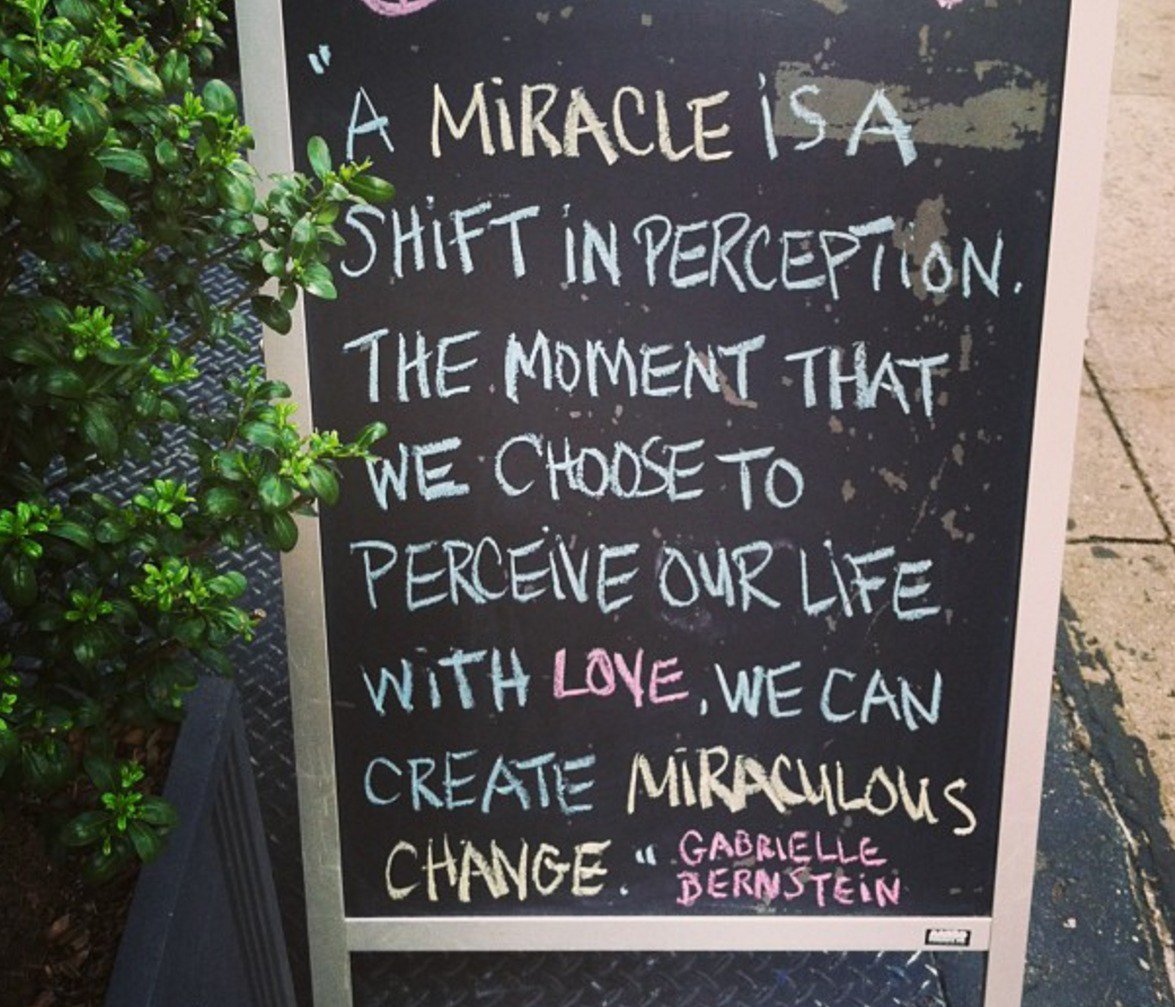 "A MIRACLE IS A
SHIFT IN PERCEPTION.
THE MOMENT THAT
WE CHOOSE TO
PERCEIVE OUR LIFE
WITH LOVE, WE CAN
CREATE MIRACULOUS
CHANGE." GABRIELLE
BERNSTEIN